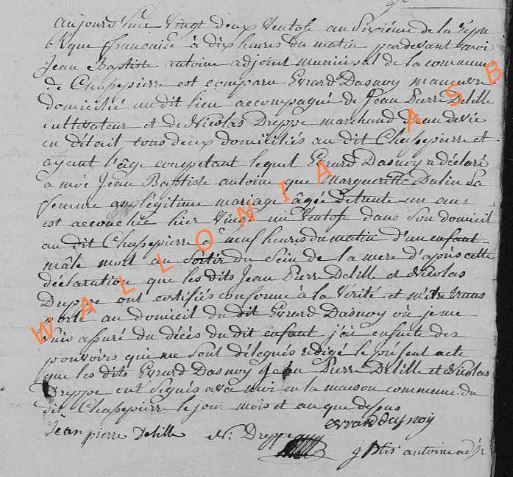 aujourd'huy Vingt deux Ventose an Sixième de la répu
blique française à dix heures du matin pardevant moi
Jean Baptiste antoine adjoint municipal de la commune
de Chassepierre est comparu Evrard Dasnoy manœuvre
domicilié au dit lieu accompagné de Jean Pierre Delille
cultivateur et de Nicolas Dreppe marchand d'eau de vie
en détail tous deux domiciliés au dit Chassepierre et
ayent l'âge compétant lequel Evrard Dasnoy a déclaré
à moi Jean Baptiste antoine que Margueritte Dulin sa
femme en légitime mariage âgée de trente un ans
est accouchée hier Vingt un Ventose dans son domicil
au dit Chassepierre à neuf heures du matin d'un enfant
mâle mort au Sortir du Sein de la mere d'après cette
déclaration que les dits Jean Pierre Delille et Nicolas
Dreppe ont certifiés conforme à la Vérité et m'être trans
porté au domicil du dit Evrard Dasnoy où je me
suis assuré du décès du dit enfant j'ai ensuite des
pouvoirs qui me Sont délégués rédigé le présent acte
que les dits Evrard Dasnoy Jean Pierre Delille et Nicolas
Dreppe ont Signés avec moi en la maison commune du
dit Chassepierre le jour mois et an que dessus
evrard dasnoy
Jean pierre delille N. Dreppe
j Btis antoine adj
WALLONIA ASB